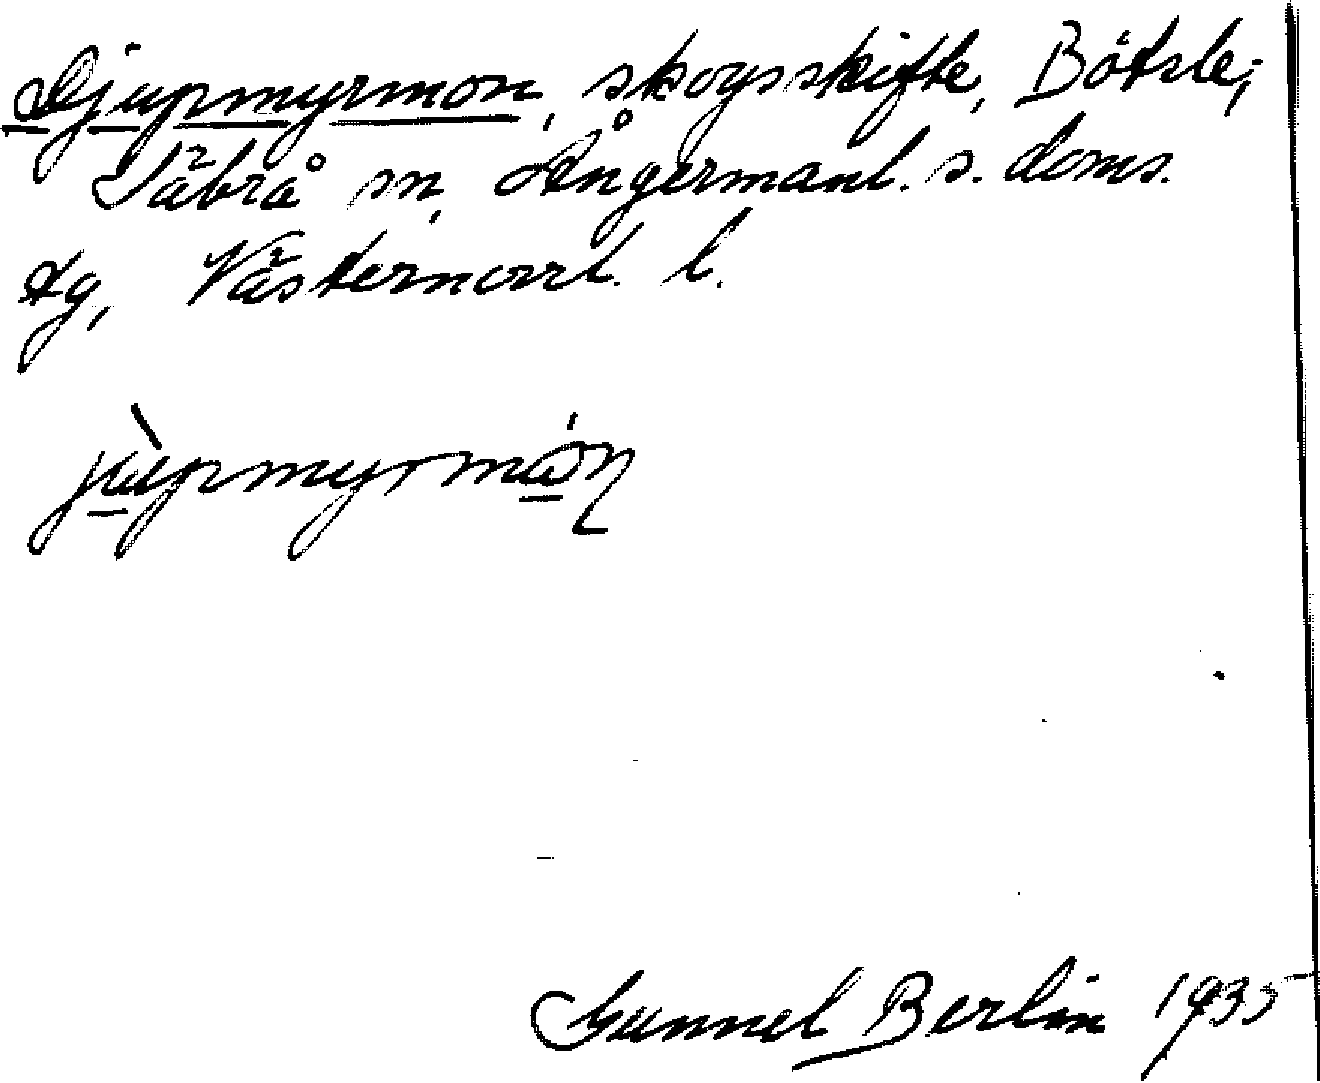 Djupmyrmon, skogsskifte, Bötsle,
Säbrå sn, Ångermanl. s. doms.
tg, Västernorrl. l.
Gunnel Berlin 1935